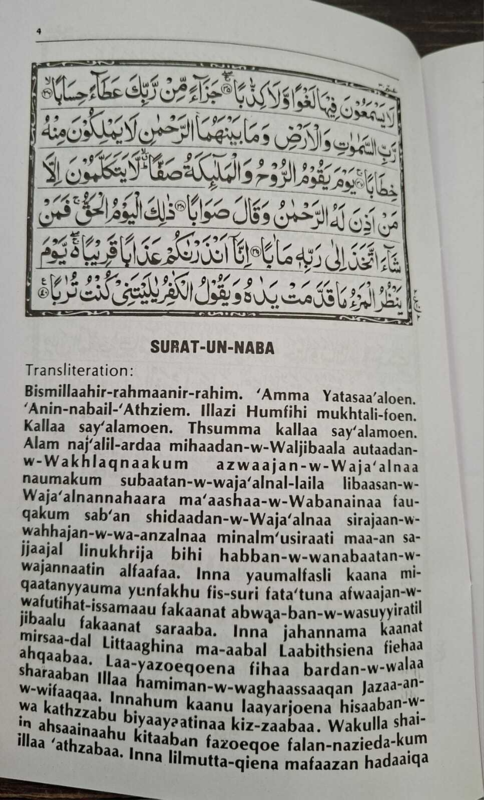 4
لَا يَسْمَعُونَ فِيهَا لَغْوًا وَّلَا كِذّٰبًا ﴿۳۵﴾ جَزَآءً مِّنْ رَّبِّكَ عَطَآءً حِسَابًا ﴿۳۶﴾
رَّبِّ السَّمٰوٰتِ وَالْاَرْضِ وَمَا بَيْنَهُمَا الرَّحْمٰنِ لَا يَمْلِكُوْنَ مِنْهُ
خِطَابًا ﴿۳۷﴾ يَوْمَ يَقُوْمُ الرُّوْحُ وَالْمَلٰٓئِكَةُ صَفًّا لَّا يَتَكَلَّمُوْنَ اِلَّا
مَنْ اَذِنَ لَهُ الرَّحْمٰنُ وَقَالَ صَوَابًا ﴿۳۸﴾ ذٰلِكَ الْيَوْمُ الْحَقُّ فَمَنْ
شَآءَ اتَّخَذَ اِلٰى رَبِّهٖ مَاٰبًا ﴿۳۹﴾ اِنَّآ اَنْذَرْنٰكُمْ عَذَابًا قَرِيْبًا يَّوْمَ
يَنْظُرُ الْمَرْءُ مَا قَدَّمَتْ يَدٰهُ وَيَقُوْلُ الْكٰفِرُ يٰلَيْتَنِيْ كُنْتُ تُرٰبًا ﴿۴۰﴾
SURAT-UN-NABA
Transliteration:
Bismillaahir-rahmaanir-rahim. ‘Amma Yatasaa’aloen.
‘Anin-nabail-‘Athziem. Illazi Humfihi mukhtali-foen.
Kallaa say‘alamoen. Thsumma kallaa say‘alamoen.
Alam naj‘alil-ardaa mihaadan-w-Waljibaala autaadan-
w-Wakhlaqnaakum azwaajan-w-Waja‘alnaa
naumakum subaatan-w-waja‘alnal-laila libaasan-w-
Waja‘alnannahaara ma‘aashaa-w-Wabanainaa fau-
qakum sab‘an shidaadan-w-Waja‘alnaa sirajaan-w-
wahhajan-w-wa-anzalnaa minalm‘usiraati maa-an sa-
jjaajal linukhrija bihi habban-w-wanabaatan-w-
wajannaatin alfaafaa. Inna yaumalfasli kaana mi-
qaatanyyauma yunfakhu fis-suri fata‘tuna afwaajan-w-
wafutihat-issamaau fakaanat abwaa-ban-w-wasuyyiratil
jibaalu fakaanat saraaba. Inna jahannama kaanat
mirsaa-dal Littaaghina ma-aabal Laabithsiena fiehaa
ahqaabaa. Laa-yazoeqoena fihaa bardan-w-walaa
sharaaban Illaa hamiman-w-waghaassaaqan Jazaa-an-
w-wifaaqaa. Innahum kaanu laayarjoena hisaaban-w-
wa kathzzabu biyaayaatinaa kiz-zaabaa. Wakulla shai-
in ahsaainaahu kitaaban fazoeqoe falan-nazieda-kum
illaa ‘athzabaa. Inna lilmutta-qiena mafaazan hadaaiqa